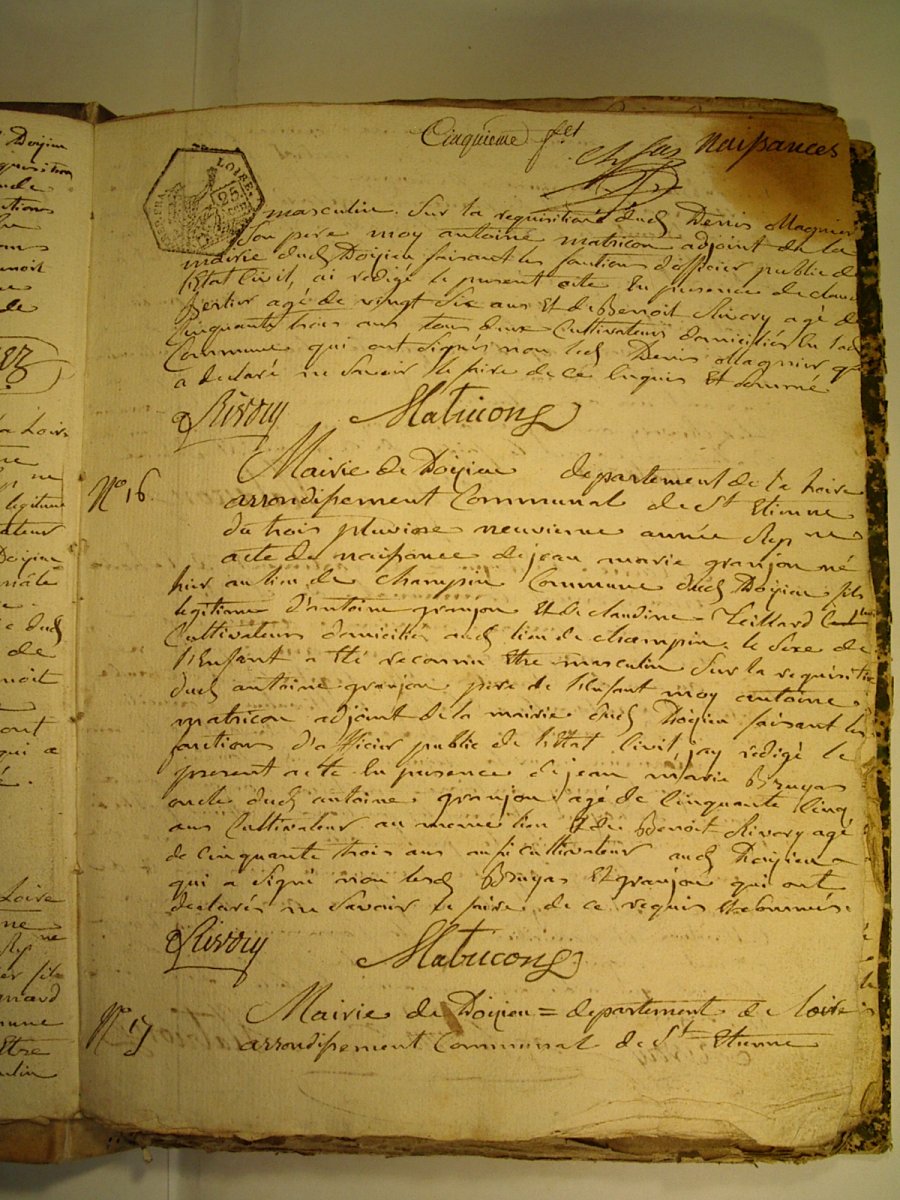 Cinquieme f.er
Naissances
LOIRE
25
masculin. Sur la requisition dud. Denis Magnier
Son pere moy antoine matricon adjoint de la
mairie dud. Doizieu faisant les fontions d'officier public de
l'Etat Civil, ai redigé le present acte En presence de claude
Bertier agé de vingt Six ans Et de Benoit Rivory agé de
Cinquante trois ans tous deux Cultivateurs domiciliés En lad.
Commune qui ont Signés non led. Denis Magnier qui
a declaré ne Savoir le faire de ce Enquis Et Sommé
Rivory Matricong
No 16. Mairie de Doizieu departement de la Loire
arrondissement Communal de St Etienne
du trois pluviose neuvieme année Rep ne
acte de naissance de jean marie granjon né
hier au lieu de champin Commune dud. Doizieu fils
legitime d'antoine granjon Et de claudine Teillard
Cultivateurs domiciliés aud. lieu de champin le Sexe de
l'Enfant a Eté reconnu Etre masculin Sur la requisition
dud. antoine granjon pere de l'Enfant moy antoine
matricon adjoint de la mairie dud. Doizieu faisant les
fonctions d'officier public de l'Etat Civil, jay redigé le
present acte En presence de jean marie Bruyas
oncle dud. antoine granjon agé de Cinquante Cinq
ans Cultivateur au meme lieu Et de Benoit Rivory agé
de Cinquante trois ans aussi cultivateur aud. Doizieu
qui a Signé non lesd. Bruyas Et granjon qui ont
declarés ne Savoir le faire de ce requis Et Sommés.
Rivory Matricong
No 17 Mairie de Doizieu = departement de Loire
arrondissement Communal de St = Etienne